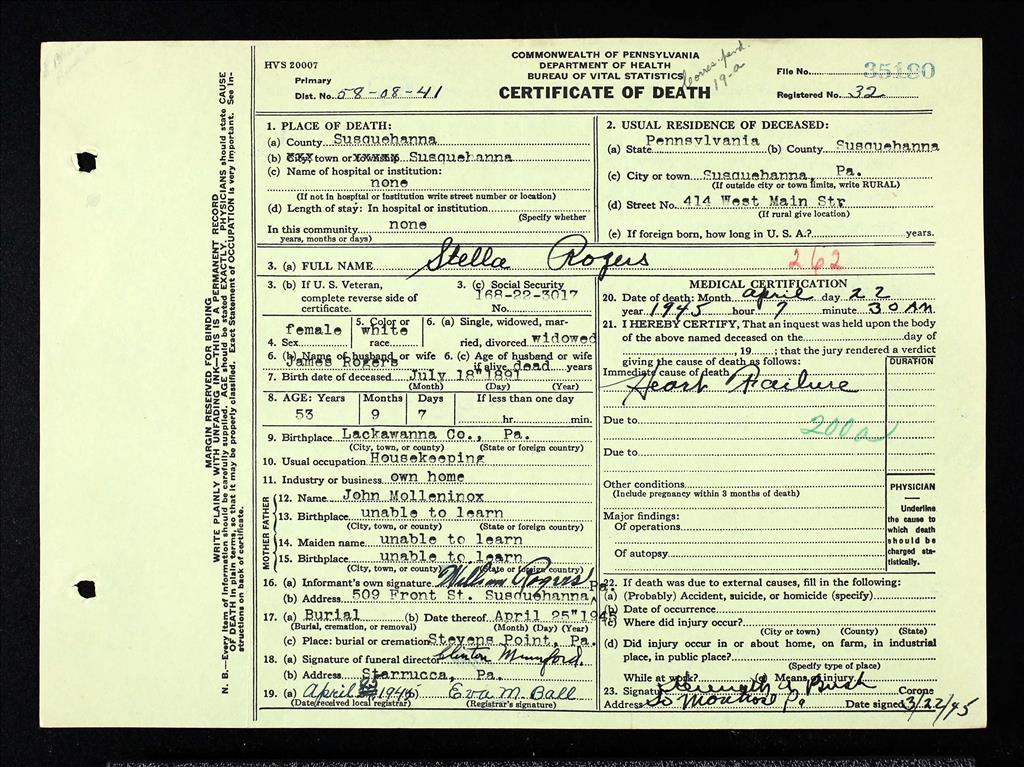 HVS 20007
Primary
Dist. No. 58-08-41
COMMONWEALTH OF PENNSYLVANIA
DEPARTMENT OF HEALTH
BUREAU OF VITAL STATISTICS
CERTIFICATE OF DEATH
19-a
File No. 35180
Registered No. 32
MARGIN RESERVED FOR BINDING
WRITE PLAINLY WITH UNFADING INK—THIS IS A PERMANENT RECORD
N. B.—Every item of information should be carefully supplied. AGE should be stated EXACTLY. PHYSICIANS should state CAUSE
OF DEATH in plain terms, so that it may be properly classified. Exact Statement of OCCUPATION is very important. See in-
structions on back of certificate.
1. PLACE OF DEATH:
(a) County Susquehanna
(b) XXX town or XXXXX Susquehanna
(c) Name of hospital or institution:
none
(If not in hospital or institution write street number or location)
(d) Length of stay: In hospital or institution
(Specify whether
In this community none
years, months or days)
2. USUAL RESIDENCE OF DECEASED:
(a) State Pennsylvania (b) County Susquehanna
(c) City or town Susquehanna, Pa.
(If outside city or town limits, write RURAL)
(d) Street No. 414 West Main Str
(If rural give location)
(e) If foreign born, how long in U. S. A.? years.
3. (a) FULL NAME Stella Rogers
262
3. (b) If U. S. Veteran,
complete reverse side of
certificate.
3. (c) Social Security
168-22-3017
No.
female
4. Sex
5. Color or
white
race
6. (a) Single, widowed, mar-
ried, divorced widowed
6. (b) Name of husband or wife
James Rogers
6. (c) Age of husband or wife
if alive dead years
7. Birth date of deceased July 18" 1891
(Month) (Day) (Year)
8. AGE: Years Months Days If less than one day
53 9 7 hr. min.
9. Birthplace Lackawanna Co., Pa.
(City, town, or county) (State or foreign country)
10. Usual occupation Housekeeping
11. Industry or business own home
MOTHER FATHER
12. Name John Molleninox
13. Birthplace unable to learn
(City, town, or county) (State or foreign country)
14. Maiden name unable to learn
15. Birthplace unable to learn
(City, town, or county) (State or foreign country)
16. (a) Informant's own signature William Rogers
(b) Address 509 Front St. Susquehanna, Pa.
17. (a) Burial (b) Date thereof April 25" 1945
(Burial, cremation, or removal) (Month) (Day) (Year)
(c) Place: burial or cremation Stevens Point, Pa.
18. (a) Signature of funeral director Clinton Mumford.
(b) Address Starrucca, Pa.
19. (a) April 1945 (b) Eva M. Ball
(Date received local registrar) (Registrar's signature)
MEDICAL CERTIFICATION
20. Date of death: Month April day 22
year 1945 hour 7 minute 30 AM
21. I HEREBY CERTIFY, That an inquest was held upon the body
of the above named deceased on the day of
, 19 ; that the jury rendered a verdict
giving the cause of death as follows: DURATION
Immediate cause of death
Heart Failure
Due to 200a
Due to
Other conditions
(Include pregnancy within 3 months of death)
Major findings:
Of operations
Of autopsy
PHYSICIAN
Underline
the cause to
which death
should be
charged sta-
tistically.
22. If death was due to external causes, fill in the following:
(a) (Probably) Accident, suicide, or homicide (specify)
(b) Date of occurrence
(c) Where did injury occur?
(City or town) (County) (State)
(d) Did injury occur in or about home, on farm, in industrial
place, in public place?
(Specify type of place)
While at work? (e) Means of injury
23. Signature Coroner
Address So Montrose Pa Date signed 3/22/45